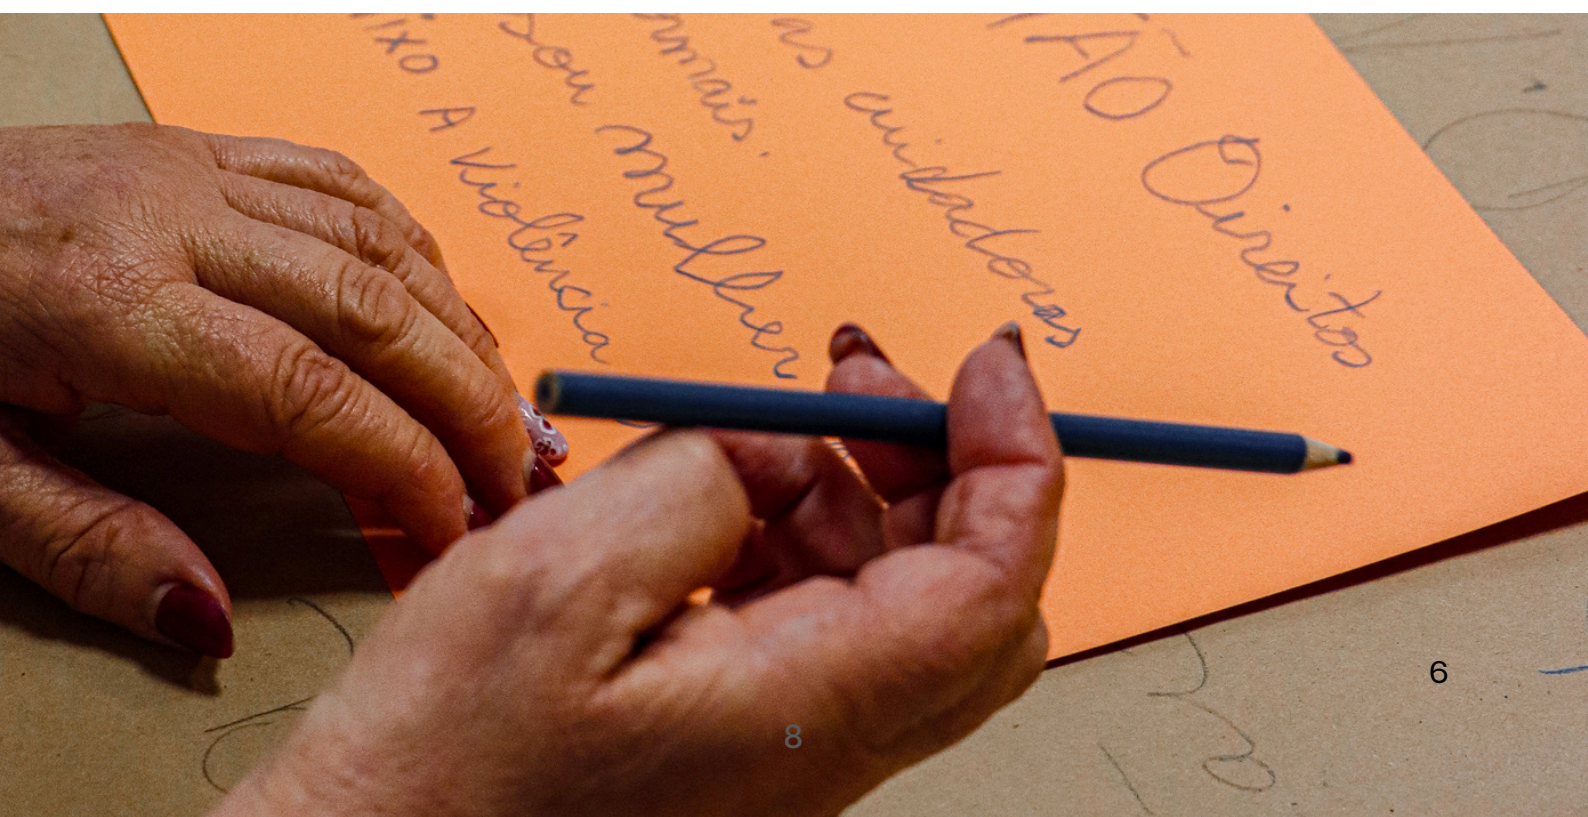 TÃO Direitos
as cuidadoras
rmais.
sou mulher
ixo A Violência
6
8